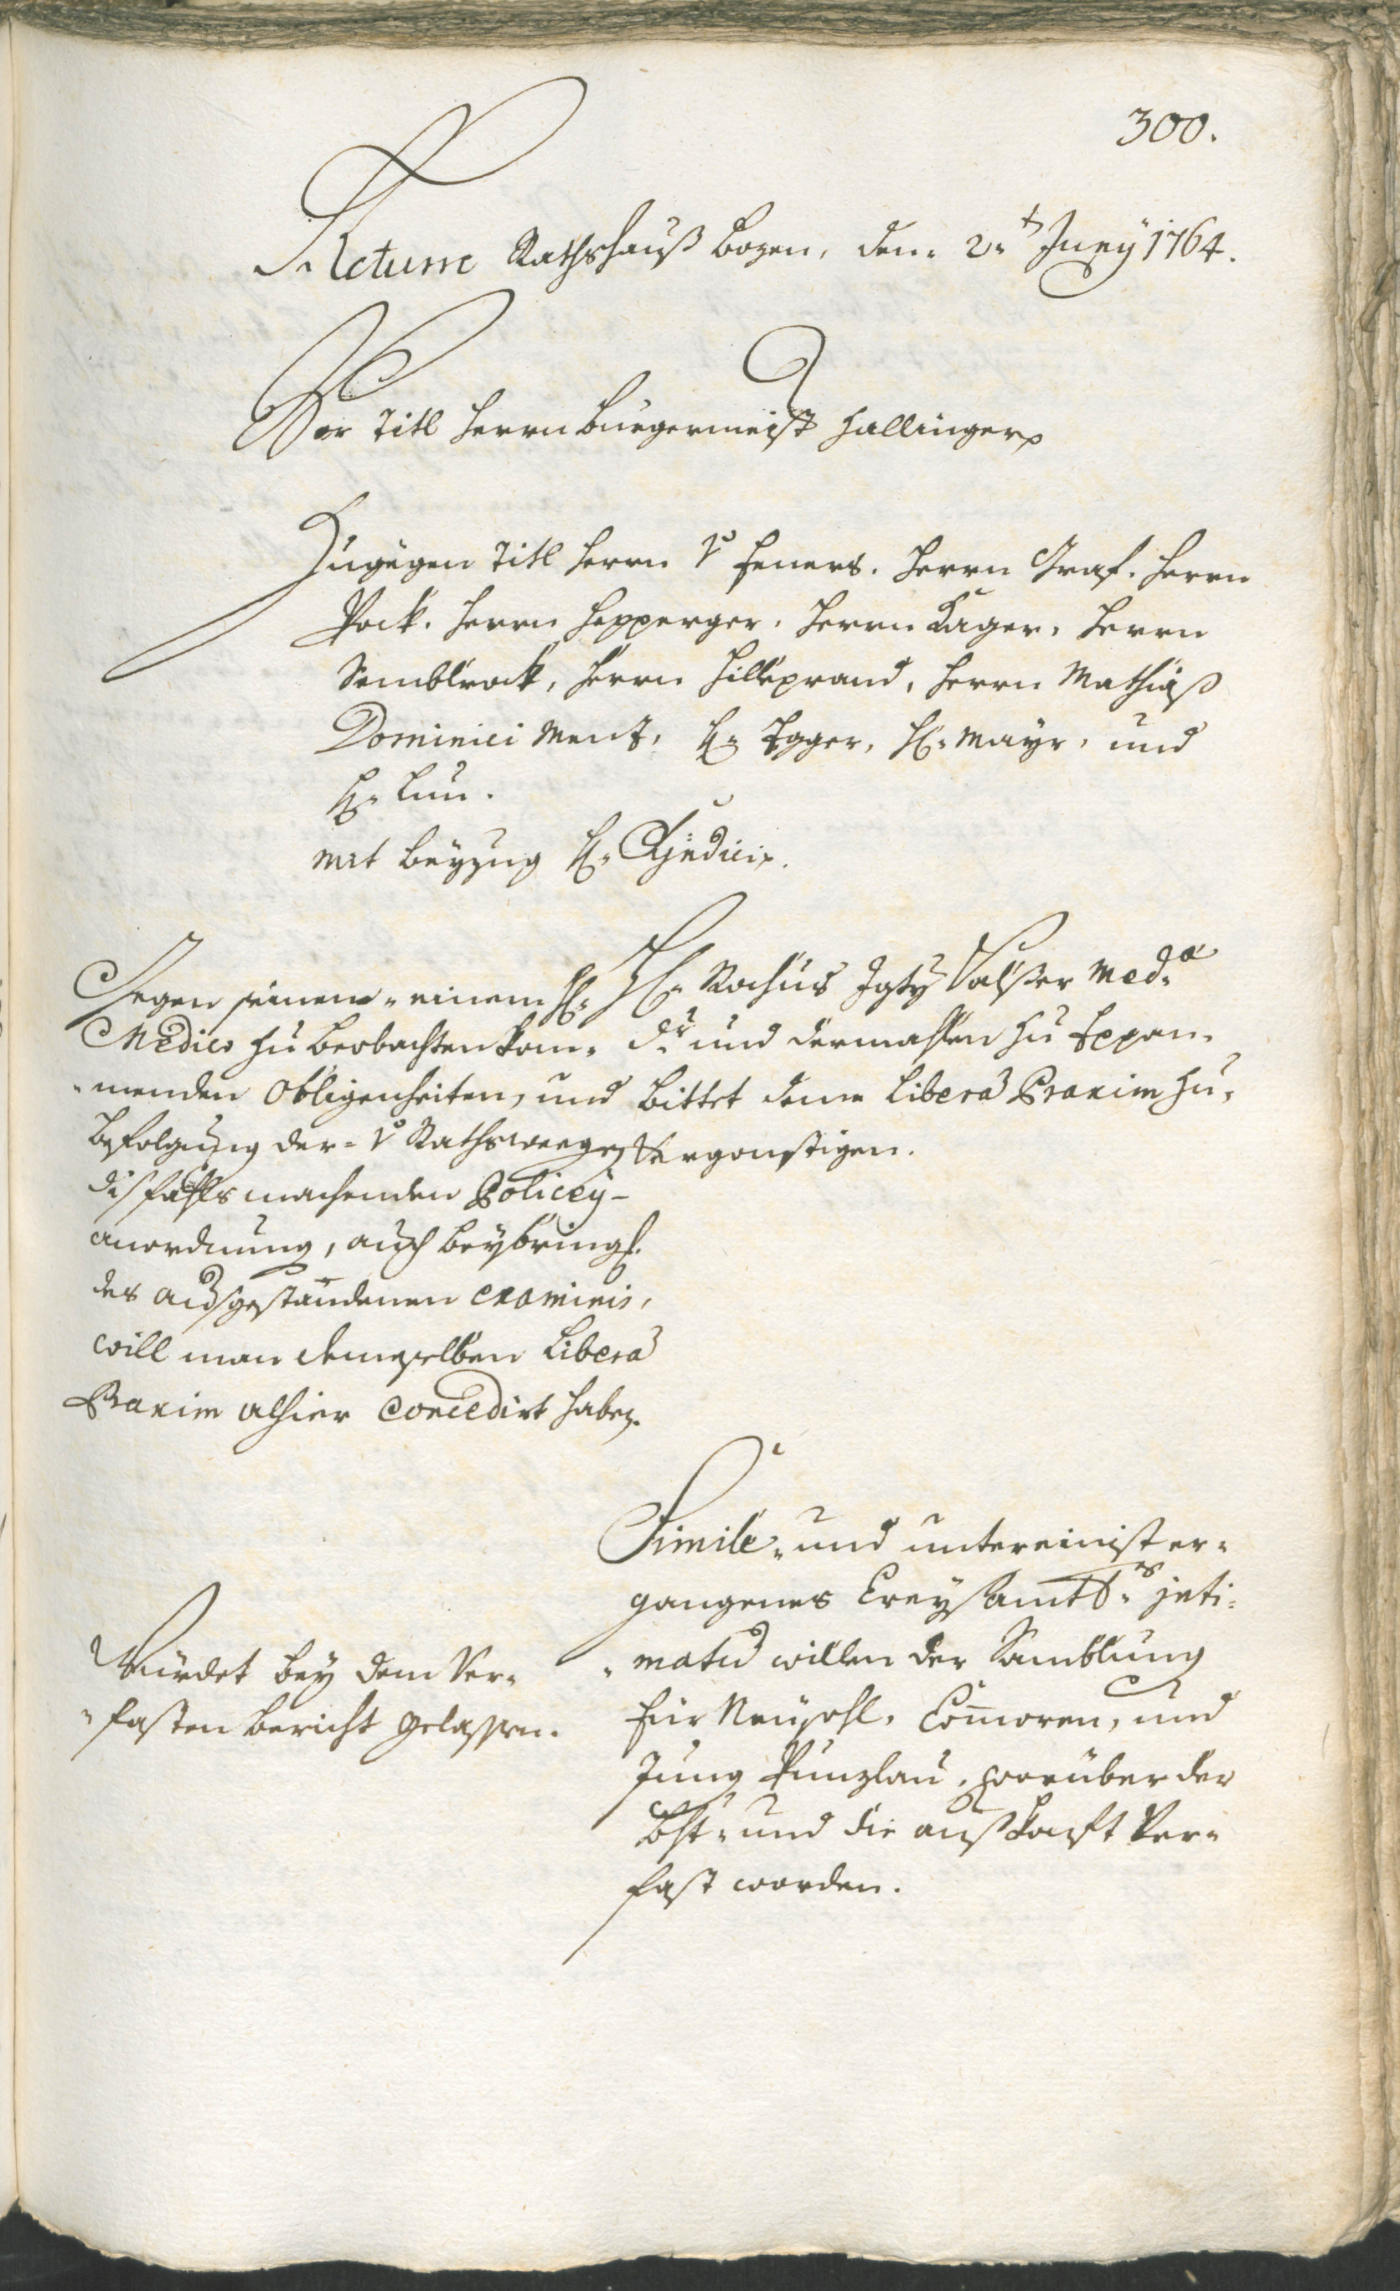 300.
Actum Rathshauß Bozen, den 2.t Juny 1764.
Vor Titl Herrn Burgermeist Hallinger
Zugegen Titl Herrn v Feners. Herrn Graf. Herrn
Pock. Herrn Hepperger. Herrn Kager, Herrn
Semblrock, Herrn Hilleprand, Herrn Mathias
Dominici Menz, H: Egger, H: Mayr, und
H: Lun.
mit beyzug H: Syndici.
Gegen seinen - einem H:
Medico zu beobachten kom-
menden Obligenheiten, und
befolgung der - v Rathsweegen
disfahls machenden Policey-
anordnung, auch beybringg.
des ausgestandenen examinis,
will man demselben Libera
Praxim alhier concedirt haben.
H: Rochus Igty Valser Med:a
Dr und dermahlen zu Eppan.
bittet denen Libera Praxim zu
Vergonstigen.
Würdet bey dem Ver-
fasten bericht gelassen.
Simile - und untereinist er-
gangenes Creysamts jnti-
matu willen der Samblung
für Neusohl, Commoren, und
Jung Punzlau, worüber der
bht: und die auskonft ver-
fast worden.